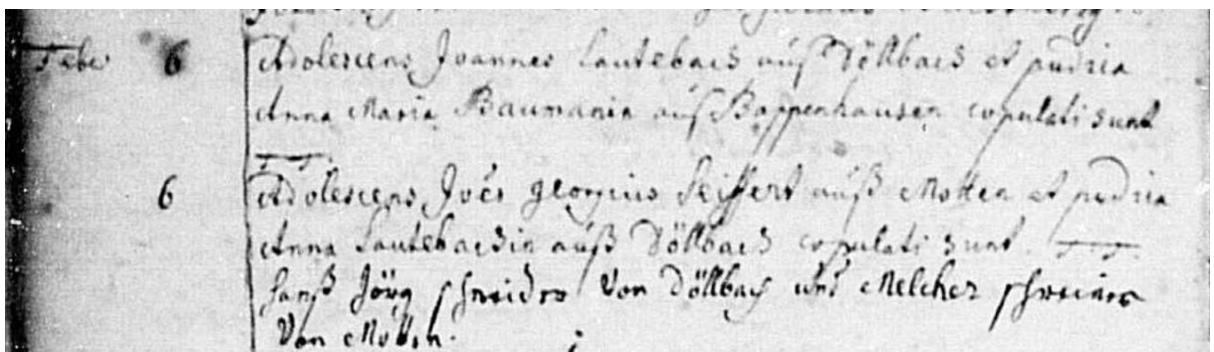 Febr 6 Adolescens Joannes Lautebach auß Döllbach et pudica
Anna Maria Baumanin auß Poppenhausen copulati sunt
TT.
6 Adolescens Joēs Georgius Seiffert auß Motten et pudica
Anna Lautebachin auß Döllbach copulati sunt. TT.
Hanß Jörg Von Döllbach und Melcher
Von Motten.